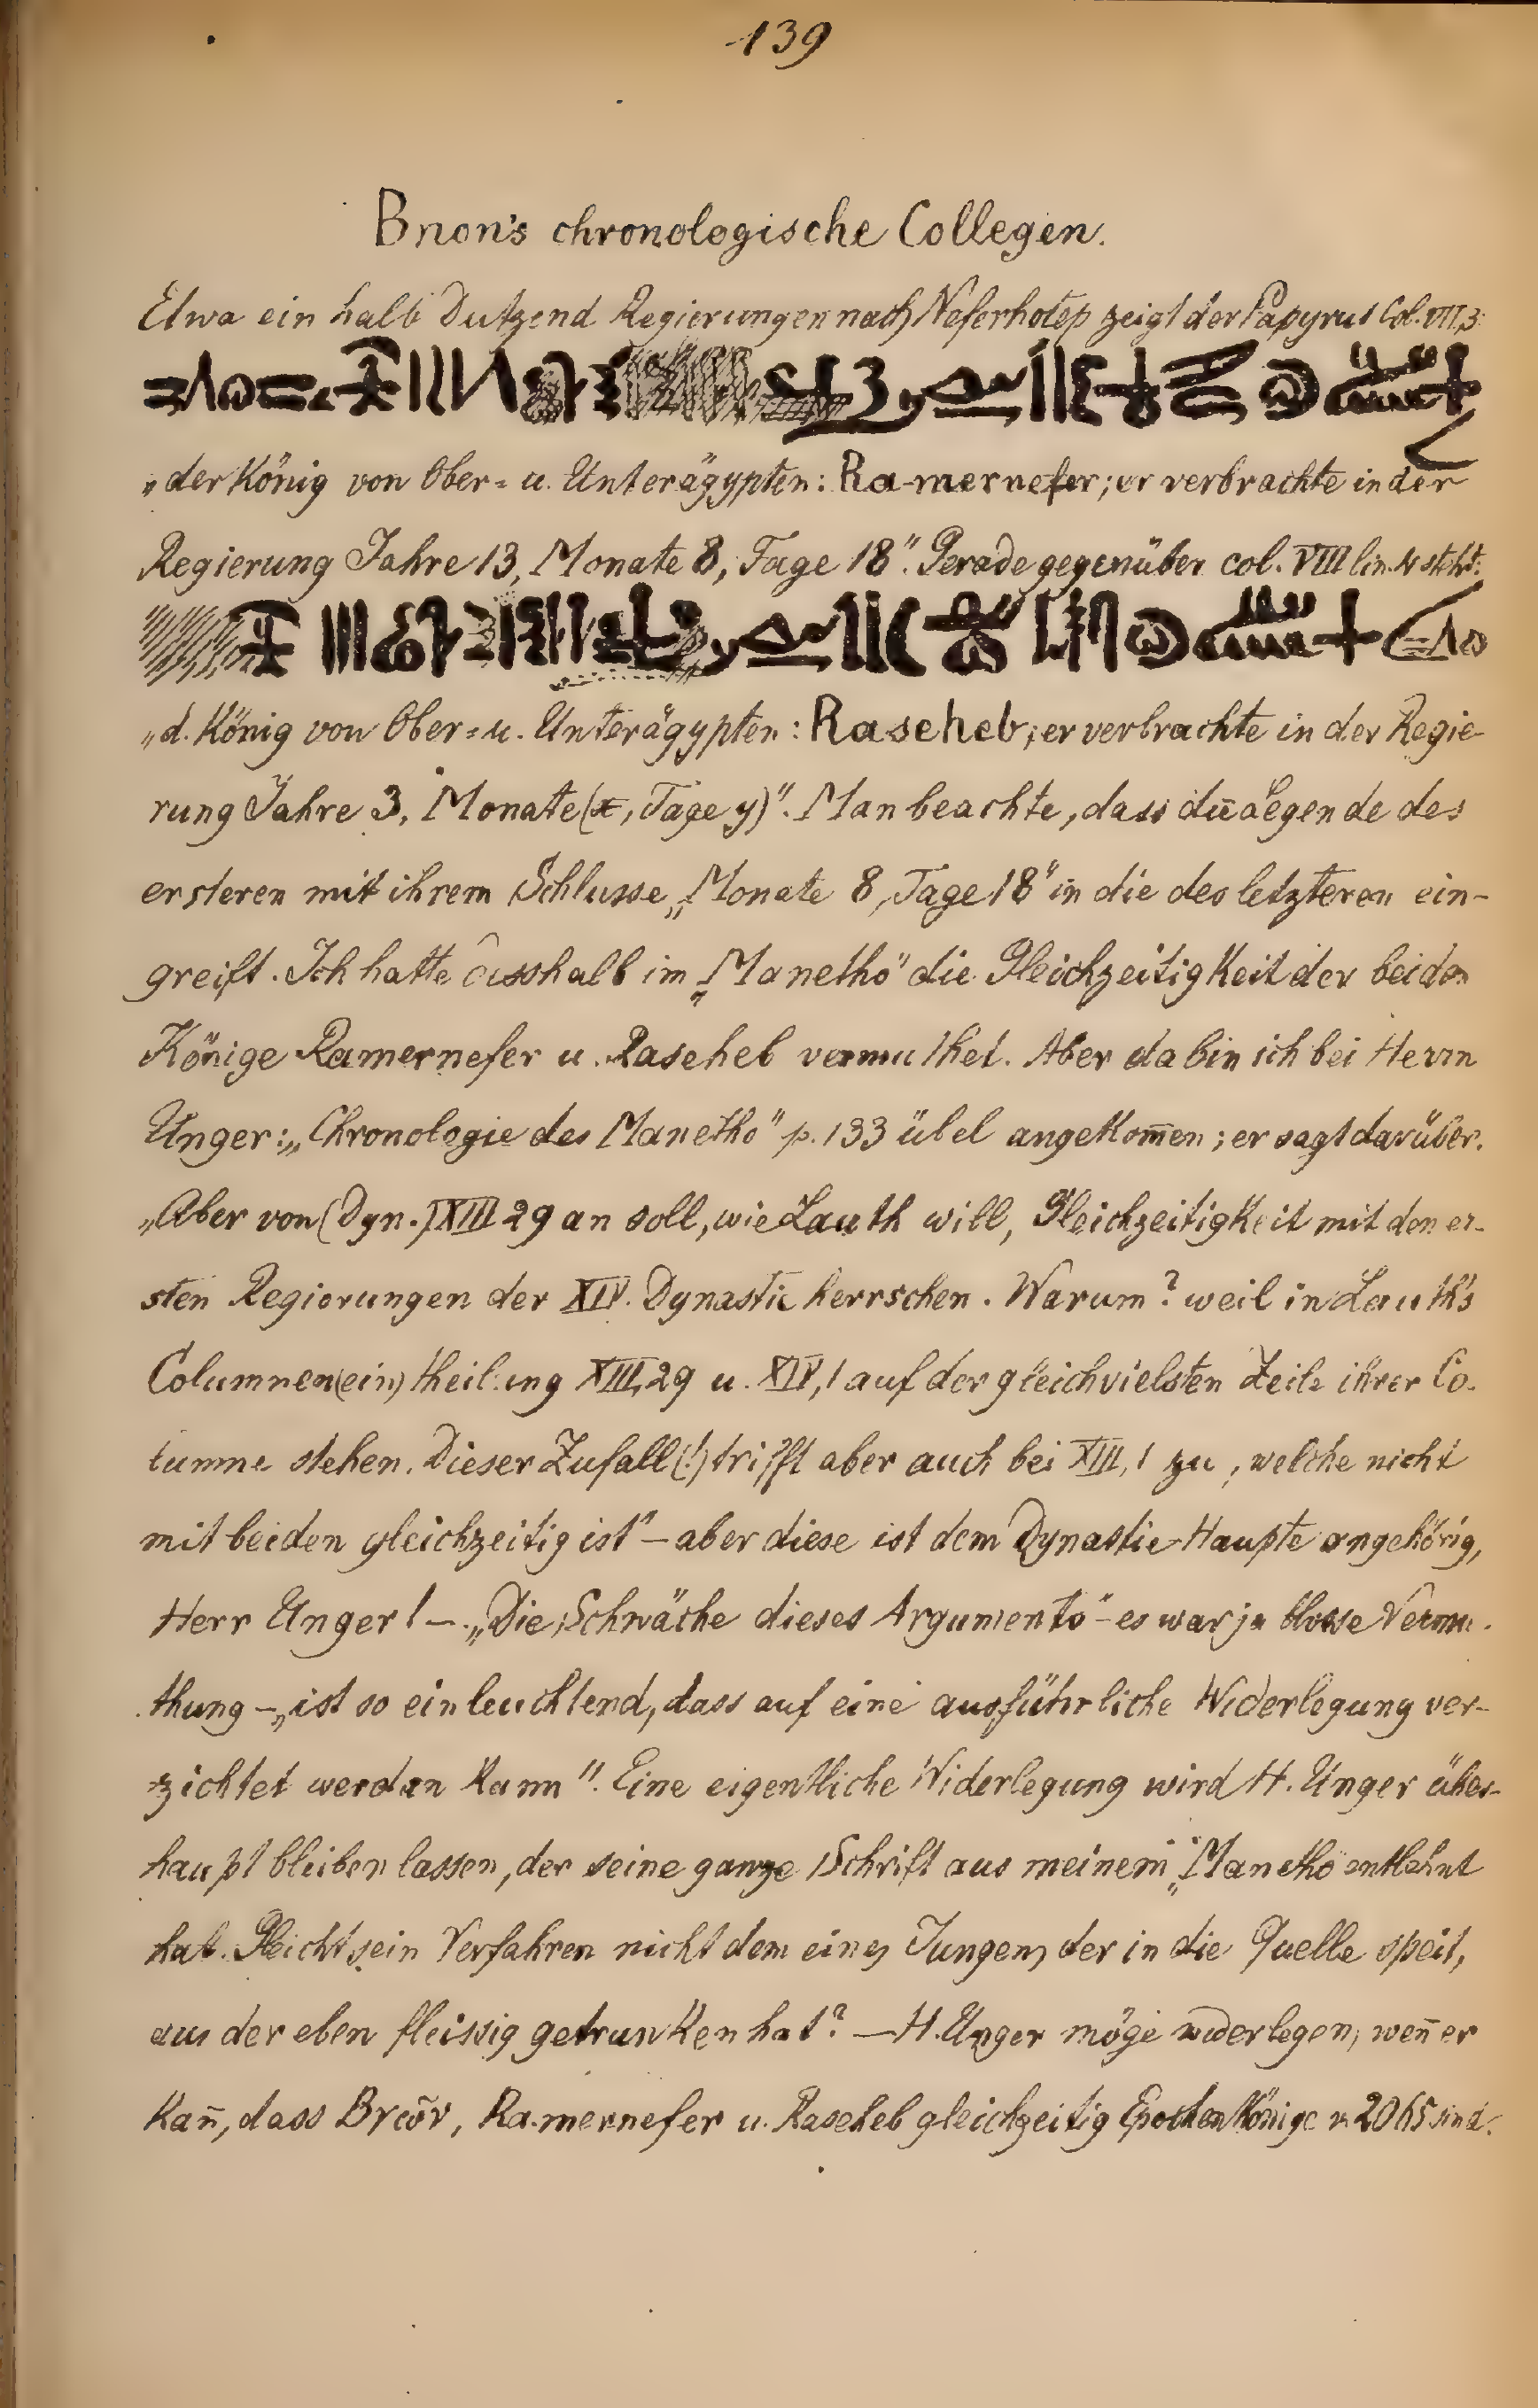 139
Bnon's chronologische Collegen.
Etwa ein halb Dutzend Regierungen nach Neferhotep zeigt der Papyrus Col. VII,3:
„der König von Ober= u. Unterägypten: Ra-mernefer; er verbrachte in der
Regierung Jahre 13, Monate 8, Tage 18". Gerade gegenüber col. VIII lin. 4 steht:
„d. König von Ober= u. Unterägypten: Raseheb; er verbrachte in der Regie-
rung Jahre 3, Monate (x, Tage y)". Man beachte, dass die Legende des
ersteren mit ihrem Schlusse „Monate 8, Tage 18" in die des letzteren ein-
greift. Ich hatte desshalb im „Manetho" die Gleichzeitigkeit der beiden
Könige Ramernefer u. Raseheb vermuthet. Aber da bin ich bei Herrn
Unger: „Chronologie des Manetho" p. 133 übel angekom̄en; er sagt darüber.
„Aber von (Dyn.) XIII 29 an soll, wie Lauth will, Gleichzeitigkeit mit den er-
sten Regierungen der XIV. Dynastie herrschen. Warum? weil in Lauth's
Columnen(ein)theilung XIII,29 u. XIV,1 auf der gleichvielsten Zeile ihrer Co-
lumne stehen. Dieser Zufall (!) trifft aber auch bei XIII,1 zu, welche nicht
mit beiden gleichzeitig ist" – aber diese ist dem Dynastie-Haupte angehörig,
Herr Unger! – „Die Schwäche dieses Arguments" – es war ja blosse Vermu-
thung – „ist so einleuchtend, dass auf eine ausführliche Widerlegung ver-
zichtet werden kann". Eine eigentliche Widerlegung wird H. Unger über-
haupt bleiben lassen, der seine ganze Schrift aus meinem „Manetho" entlehnt
hat. Gleicht sein Verfahren nicht dem eines Jungen, der in die Quelle speit,
aus der eben fleissig getrunken hat? – H. Unger möge widerlegen, wen̄ er
kan̄, dass Βνών, Ra-mernefer u. Raseheb gleichzeitig Epochenkönige v. 2065 sind.